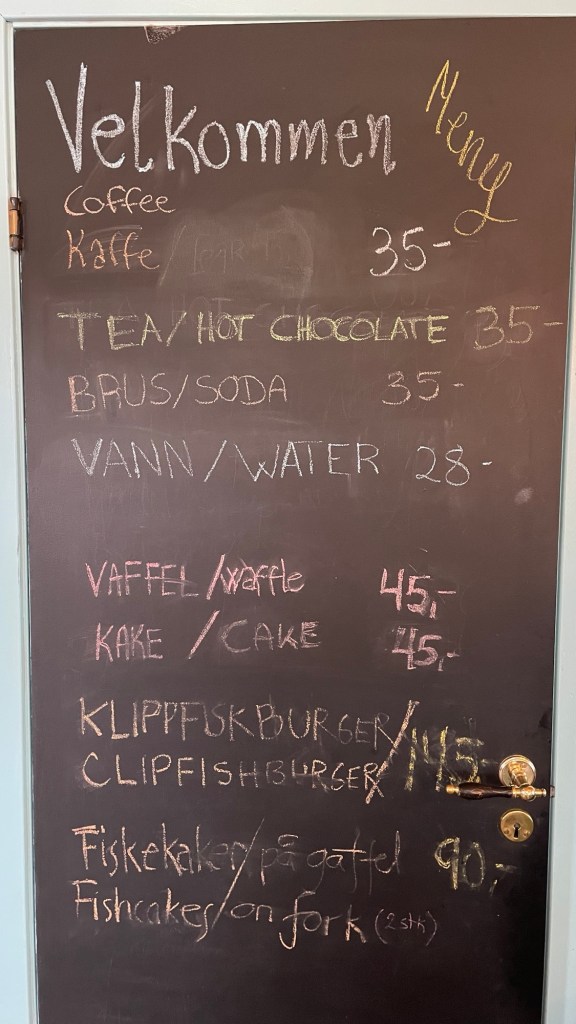 Velkommen
Meny
Coffee
Kaffe 35-
TEA/HOT CHOCOLATE 35-
BRUS/SODA 35-
VANN/WATER 28-
VAFFEL/waffle 45,-
KAKE/CAKE 45,-
KLIPPFISKBURGER/
CLIPFISHBURGER 145-
Fiskekaker/på gaffel 90,-
Fishcakes/on fork (2 stk)